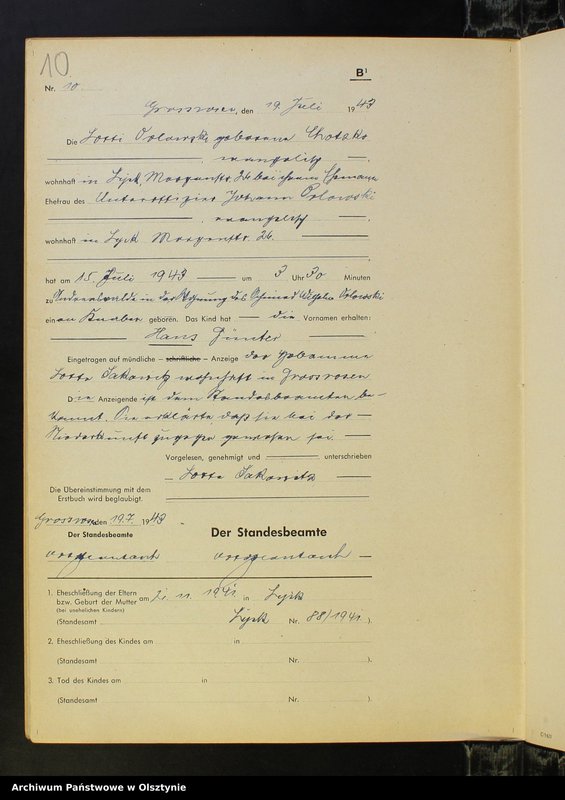 10
B¹
Nr. 10
Grossrosen, den 19. Juli 1943
Die Lotti Orlowski geborene
evangelisch
wohnhaft in Lyck, Morgenstr. 26 bei ihrem Ehemann
Ehefrau des Unteroffizier Johann Orlowski
evangelisch
wohnhaft in Lyck Morgenstr. 26.
hat am 15. Juli 1943 um 3 Uhr 30 Minuten
zu in der Wohnung des Schmied Wilhelm Orlowski
einen Knaben geboren. Das Kind hat die Vornamen erhalten:
Hans Günter
Eingetragen auf mündliche – schriftliche – Anzeige der Hebamme
Lotte Sakowitz wohnhaft in Grossrosen.
Die Anzeigende ist dem Standesbeamten be-
kannt. Sie erklärte daß sie bei der
Niederkunft zugegen gewesen sei.
Vorgelesen, genehmigt und unterschrieben
Lotte Sakowitz
Die Übereinstimmung mit dem
Erstbuch wird beglaubigt.
Grossrosen, den 19.7. 1943
Der Standesbeamte
Der Standesbeamte
1. Eheschließung der Eltern
bzw. Geburt der Mutter am 2. 11. 1941. in Lyck
(bei unehelichen Kindern)
(Standesamt Lyck Nr. 88/1941.).
2. Eheschließung des Kindes am in
(Standesamt Nr. ).
3. Tod des Kindes am in
(Standesamt Nr. ).
Archiwum Państwowe w Olsztynie